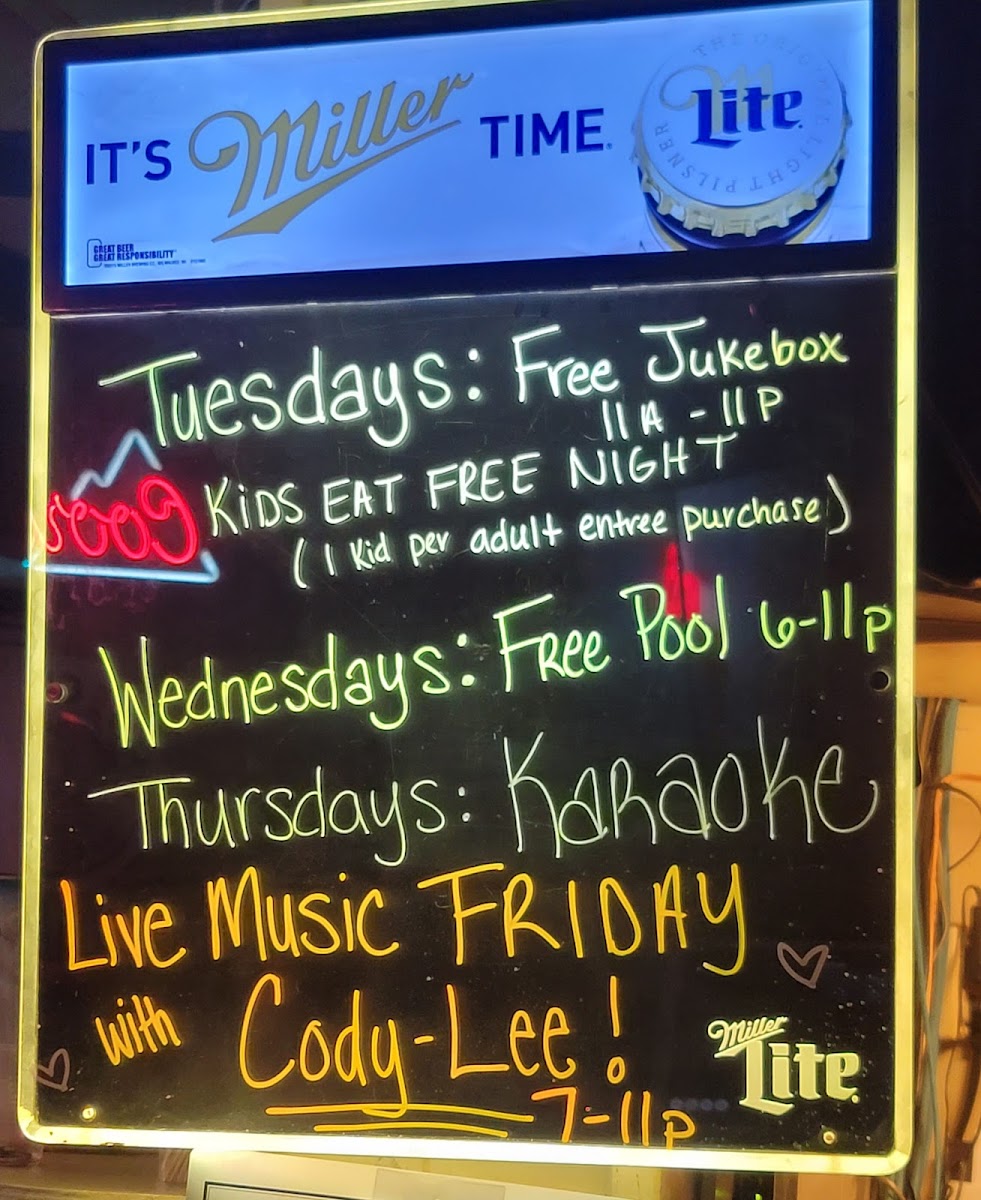 IT'S Miller TIME.
THE ORIGINAL LIGHT PILSNER
Lite
GREAT BEER
GREAT RESPONSIBILITY
Tuesdays: Free Jukebox
11A - 11P
KiDS EAT FREE NIGHT
(1 Kid per adult entree purchase)
Wednesdays: FRee Pool 6-11p
Thursdays: KaRaoke
Live Music FRIDAY
with Cody-Lee!
7-11p
Miller
Lite